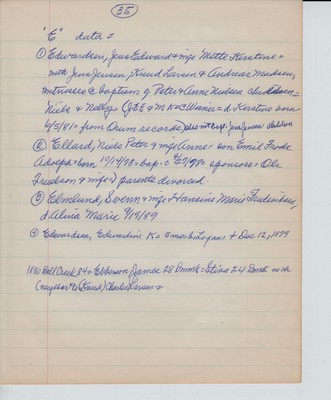 35
"E" data =
① Edwardsen, Jens Edward & mgs Mette Kerstine =
with Jens Jensen, Knud Larsen & Andreas Madsen,
witnesses @ baptism of Peter & Anne Nielsen children =
Niels & Nelly = (JEE & M K = C Warner = d. Kerstine born
6/5/81 = from Orum records) also wit bap. Jens Jensen children
② Ellard, Niels Peter & mgs Anne = son Emil Frode
Adolph = born 10/14/98 = bap. = sponsors = Ole
& mgs = parents divorced.
③ Elmlund, Svenn & mgs Hansine Marie Frederiksen,
d Alvia Marie 9/19/89
④ Edwardsen, Edwardine K = Enos b Logan = + Dec 12, 1879
1880 Bell Creek 84 = Ebbeson James 28 Dnmk = Stina 24 Dnmk
(neighbor to Knud) Charles Larsen =